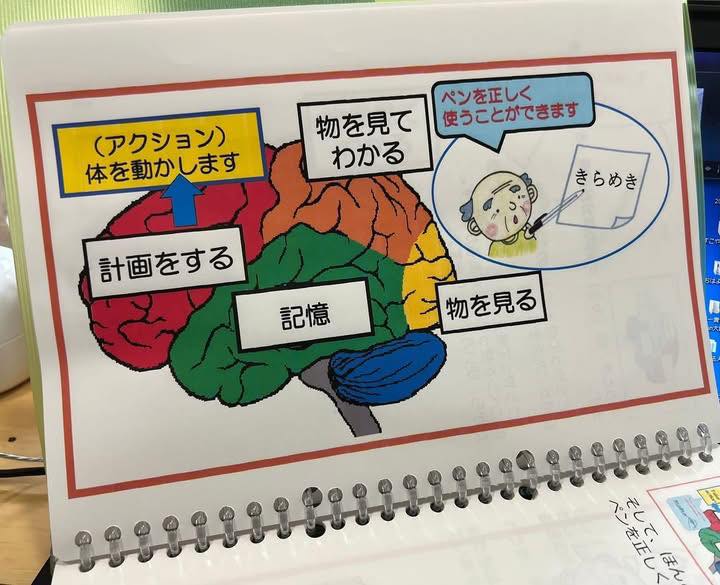 (アクション)
体を動かします
物を見て
わかる
ペンを正しく
使うことができます
きらめき
計画をする
記憶
物を見る
そして、ほん
ペンを正しく